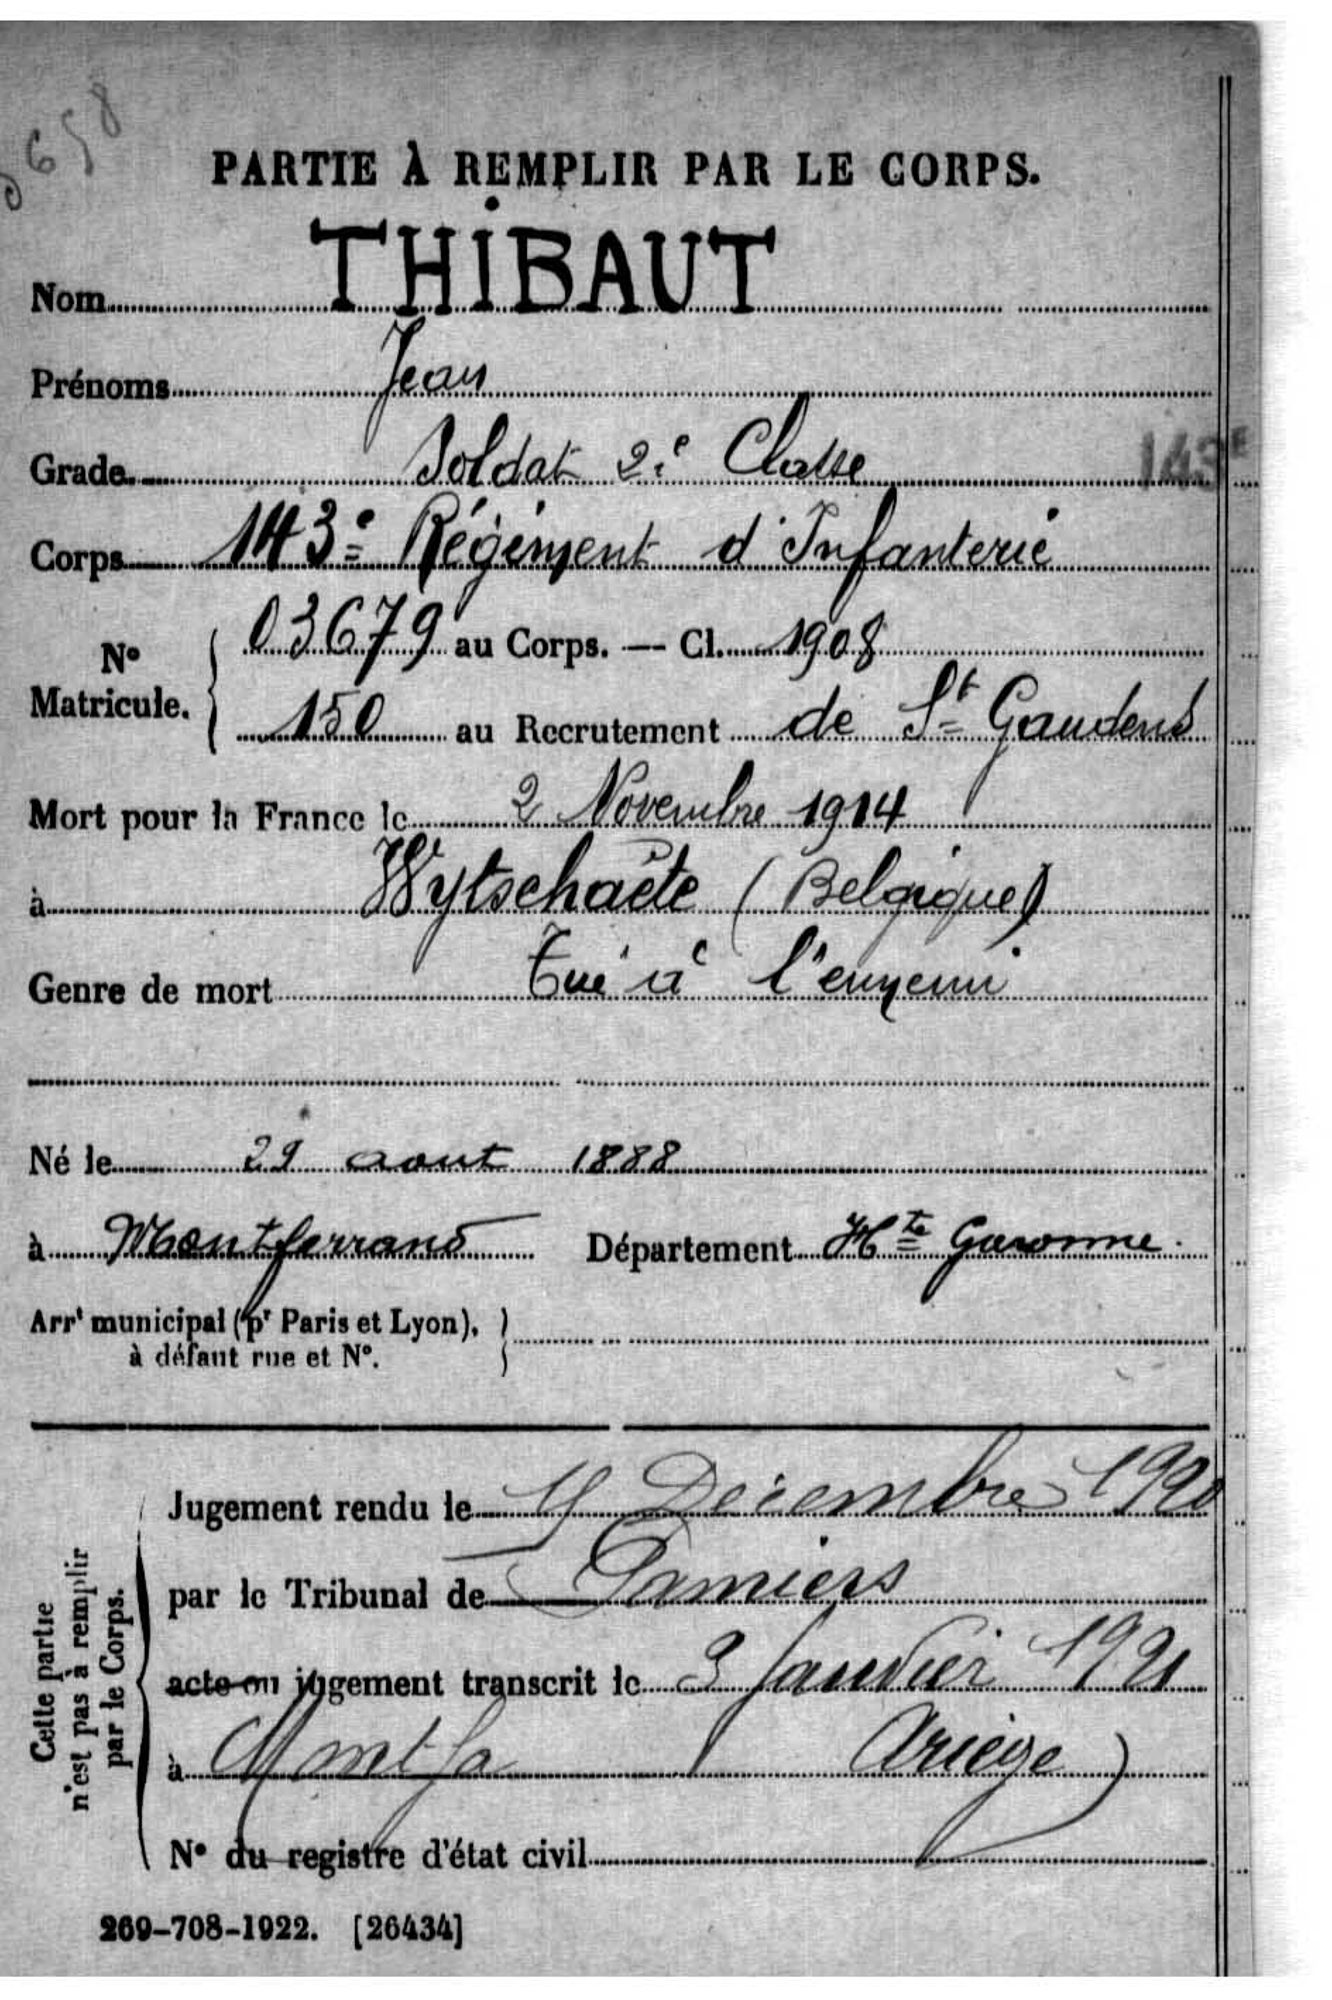 3658
PARTIE À REMPLIR PAR LE CORPS.
Nom THIBAUT
Prénoms Jean
Grade Soldat 2e Classe 143E
Corps 143e Régiment d'Infanterie
No Matricule. { 03679 au Corps. — Cl. 1908
150 au Recrutement de St Gaudens
Mort pour la France le 2 Novembre 1914
à Wytschaëte (Belgique)
Genre de mort Tué à l'ennemi
Né le 29 aout 1888
à Montferrand Département Hte Garonne.
Arrt municipal (pr Paris et Lyon), à défaut rue et No. }
Cette partie n'est pas à remplir par le Corps.
Jugement rendu le Décembre 1920
par le Tribunal de Pamiers
acte ou jugement transcrit le 3 Janvier 1921
à Montfa (Ariège)
No du registre d'état civil
269-708-1922. [26434]